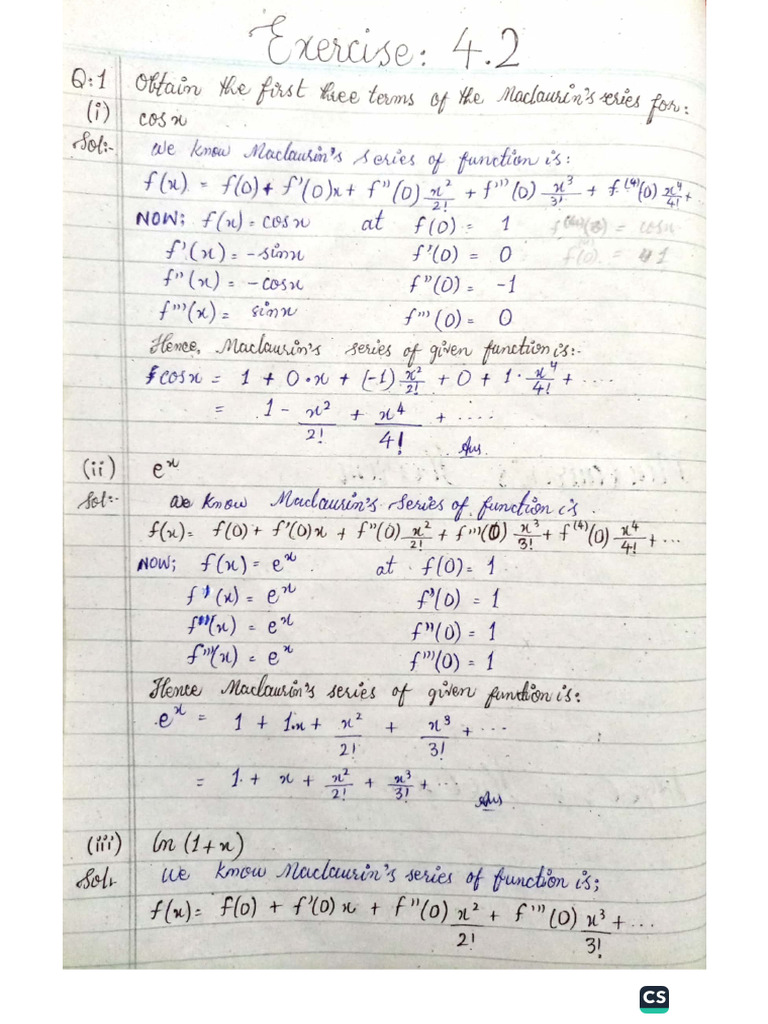 Exercise: 4.2
Q:1 Obtain the first three terms of the Maclaurin's series for:
(i) cosx
Sol:- We know Maclaurin's series of function is:
f(x) = f(0) + f'(0)x + f''(0) x²/2! + f'''(0) x³/3! + f⁽⁴⁾(0) x⁴/4! +
NOW; f(x) = cosx at f(0) = 1 = cosx
f'(x) = -sinx f'(0) = 0 f(0) = 1
f''(x) = -cosx f''(0) = -1
f'''(x) = sinx f'''(0) = 0
Hence, Maclaurin's series of given function is:-
cosx = 1 + 0·x + (-1) x²/2! + 0 + 1· x⁴/4! + ....
= 1 - x²/2! + x⁴/4! + ....
Ans
(ii) eˣ
Sol:- We know Maclaurin's series of function is.
f(x) = f(0) + f'(0)x + f''(0) x²/2! + f'''(0) x³/3! + f⁽⁴⁾(0) x⁴/4! + ...
NOW; f(x) = eˣ at f(0) = 1
f'(x) = eˣ f'(0) = 1
f''(x) = eˣ f''(0) = 1
f'''(x) = eˣ f'''(0) = 1
Hence Maclaurin's series of given function is:
eˣ = 1 + 1.x + x²/2! + x³/3! + ...
= 1 + x + x²/2! + x³/3! + ...
Ans
(iii) ln (1+x)
Sol:- We know Maclaurin's series of function is;
f(x) = f(0) + f'(0) x + f''(0) x²/2! + f'''(0) x³/3! + ...
CS